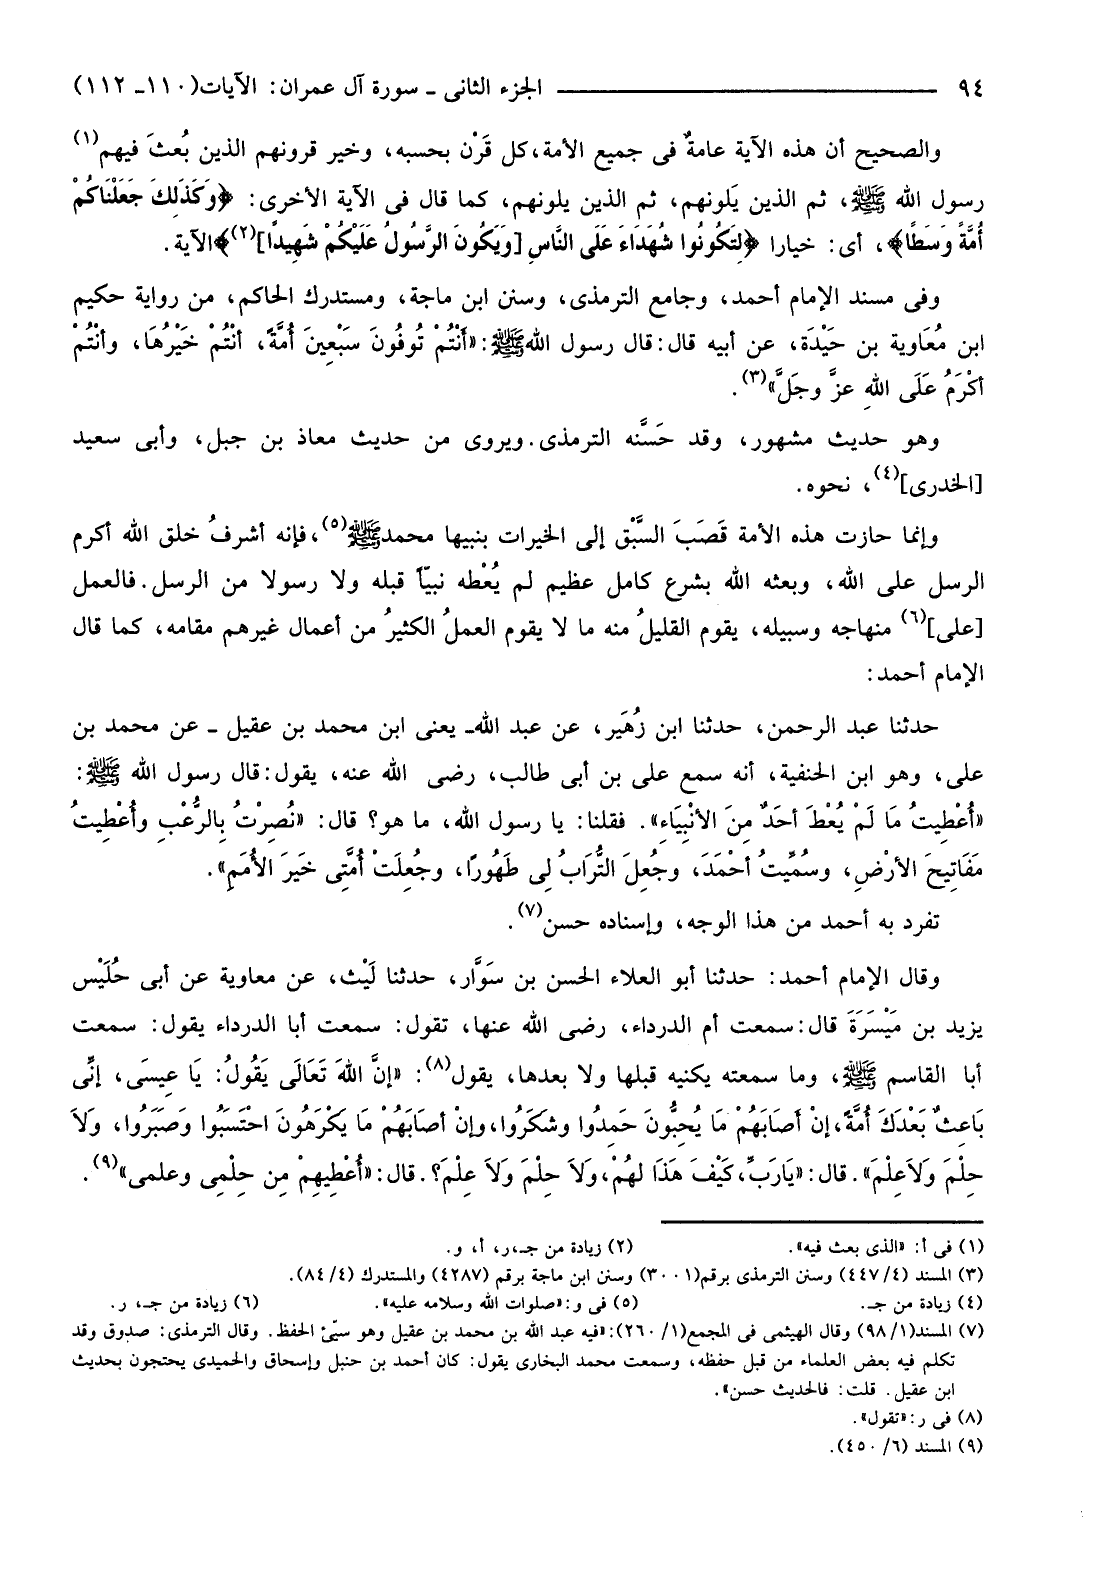 ٩٤ ــــــــــــــــــــ الجزء الثانى ـ سورة آل عمران: الآيات(١١٠ـ ١١٢)
والصحيح أن هذه الآية عامةٌ فى جميع الأمة،كل قَرْن بحسبه، وخير قرونهم الذين بُعثَ فيهم(١)
رسول الله ﷺ، ثم الذين يَلونهم، ثم الذين يلونهم، كما قال فى الآية الأخرى: ﴿وَكَذَلِكَ جَعَلْنَاكُمْ
أُمَّةً وَسَطًا﴾، أى: خيارا ﴿لتَكُونُوا شُهَدَاءَ عَلَى النَّاسِ [وَيَكُونَ الرَّسُولُ عَلَيْكُمْ شَهِيدًا](٢)﴾الآية.
وفى مسند الإمام أحمد، وجامع الترمذى، وسنن ابن ماجة، ومستدرك الحاكم، من رواية حكيم
ابن مُعَاوية بن حَيْدَة، عن أبيه قال:قال رسول اللهﷺ:«أَنْتُمْ تُوفُونَ سَبْعِينَ أُمَّةً، أنْتُمْ خَيْرُهَا، وأنْتُمْ
أكْرَمُ عَلَى اللهِ عزَّ وجَلَّ»(٣).
وهو حديث مشهور، وقد حَسَّنه الترمذى.ويروى من حديث معاذ بن جبل، وأبى سعيد
[الخدرى](٤)، نحوه.
وإنما حازت هذه الأمة قَصَبَ السَّبْق إلى الخيرات بنبيها محمدﷺ(٥)،فإنه أشرفُ خلق الله أكرم
الرسل على الله، وبعثه الله بشرع كامل عظيم لم يُعْطه نبيّاً قبله ولا رسولا من الرسل.فالعمل
[على](٦) منهاجه وسبيله، يقوم القليلُ منه ما لا يقوم العملُ الكثيرُ من أعمال غيرهم مقامه، كما قال
الإمام أحمد:
حدثنا عبد الرحمن، حدثنا ابن زُهَير، عن عبد الله ـ يعنى ابن محمد بن عقيل ـ عن محمد بن
على، وهو ابن الحنفية، أنه سمع على بن أبى طالب، رضى الله عنه، يقول:قال رسول الله ﷺ:
«أُعْطِيتُ مَا لَمْ يُعْطَ أحَدٌ مِنَ الأنْبِيَاءِ». فقلنا: يا رسول الله، ما هو؟ قال: «نُصِرْتُ بِالرُّعْبِ وأُعْطِيتُ
مَفَاتِيحَ الأرْضِ، وسُمِّيتُ أحْمَدَ، وجُعِلَ التُّرَابُ لِى طَهُورًا، وجُعِلَتْ أُمَّتِى خَيَرَ الأُمَمِ».
تفرد به أحمد من هذا الوجه، وإسناده حسن(٧).
وقال الإمام أحمد: حدثنا أبو العلاء الحسن بن سَوَّار، حدثنا لَيْث، عن معاوية عن أبى حُلَيْس
يزيد بن مَيْسَرَةَ قال:سمعت أم الدرداء، رضى الله عنها، تقول: سمعت أبا الدرداء يقول: سمعت
أبا القاسم ﷺ، وما سمعته يكنيه قبلها ولا بعدها، يقول(٨): «إنَّ اللهَ تَعَالَى يَقُولُ: يَا عِيسَى، إنِّى
بَاعِثٌ بَعْدَكَ أُمَّةً،إنْ أصَابَهُمْ مَا يُحِبُّونَ حَمِدُوا وشَكَرُوا،وإنْ أصَابَهُمْ مَا يَكْرَهُونَ احْتَسَبُوا وَصَبَرُوا، ولَا
حِلْمَ وَلَاعِلْمَ».قال:«يَارَبِّ،كَيْفَ هَذَا لهُمْ،ولَا حِلْمَ ولَا عِلْمَ؟.قال:«أُعْطِيهِمْ مِن حِلْمِى وعلمى»(٩).
(١) فى أ: «الذى بعث فيه». (٢) زيادة من جـ،ر، أ، و.
(٣) المسند (٤/ ٤٤٧) وسنن الترمذى برقم(٣٠٠١) وسنن ابن ماجة برقم (٤٢٨٧) والمستدرك (٤/ ٨٤).
(٤) زيادة من جـ. (٥) فى و:«صلوات الله وسلامه عليه». (٦) زيادة من جـ، ر.
(٧) المسند(١/ ٩٨) وقال الهيثمى فى المجمع(١/ ٢٦٠):«فيه عبد الله بن محمد بن عقيل وهو سيّئ الحفظ. وقال الترمذى: صدوق وقد
تكلم فيه بعض العلماء من قبل حفظه، وسمعت محمد البخارى يقول: كان أحمد بن حنبل وإسحاق والحميدى يحتجون بحديث
ابن عقيل. قلت: فالحديث حسن».
(٨) فى ر:«تقول».
(٩) المسند (٦/ ٤٥٠).